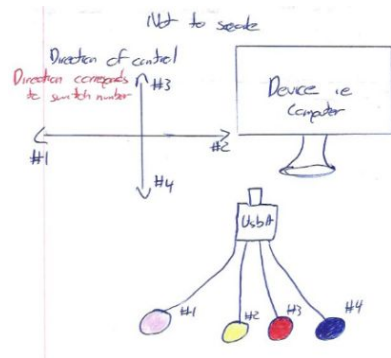 Not to scale
Direction of control
Direction corresponds
to switch number
#3
#1
#2
#4
Device ie
Computer
Usb A
#1
#2
#3
#4